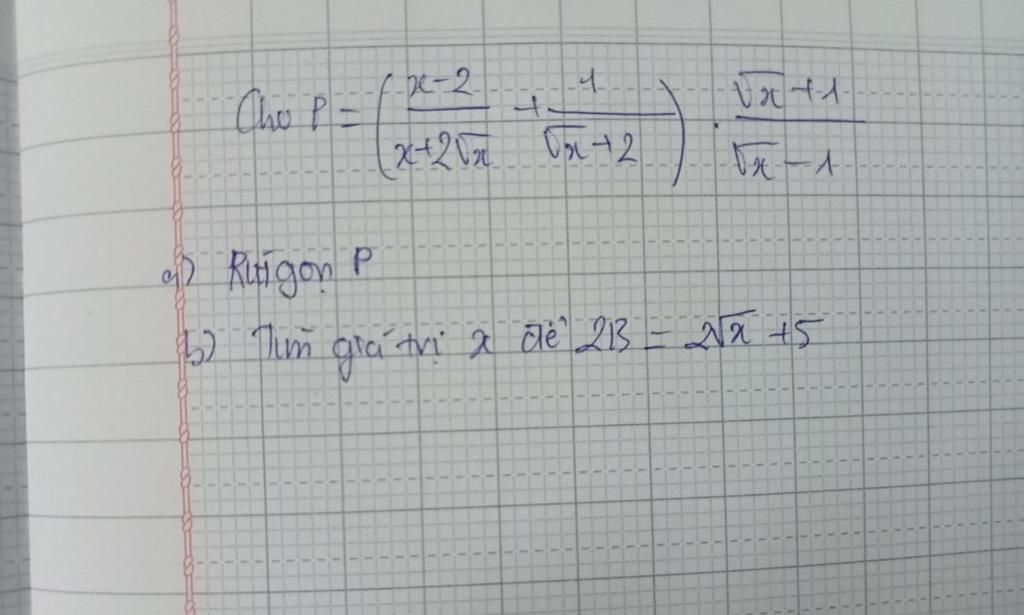 Cho P = ( (x-2)/(x+2√x) + 1/(√x+2) ) . (√x+1)/(√x-1)
a) Rút gọn P
b) Tìm giá trị x để 2B = 2√x + 5